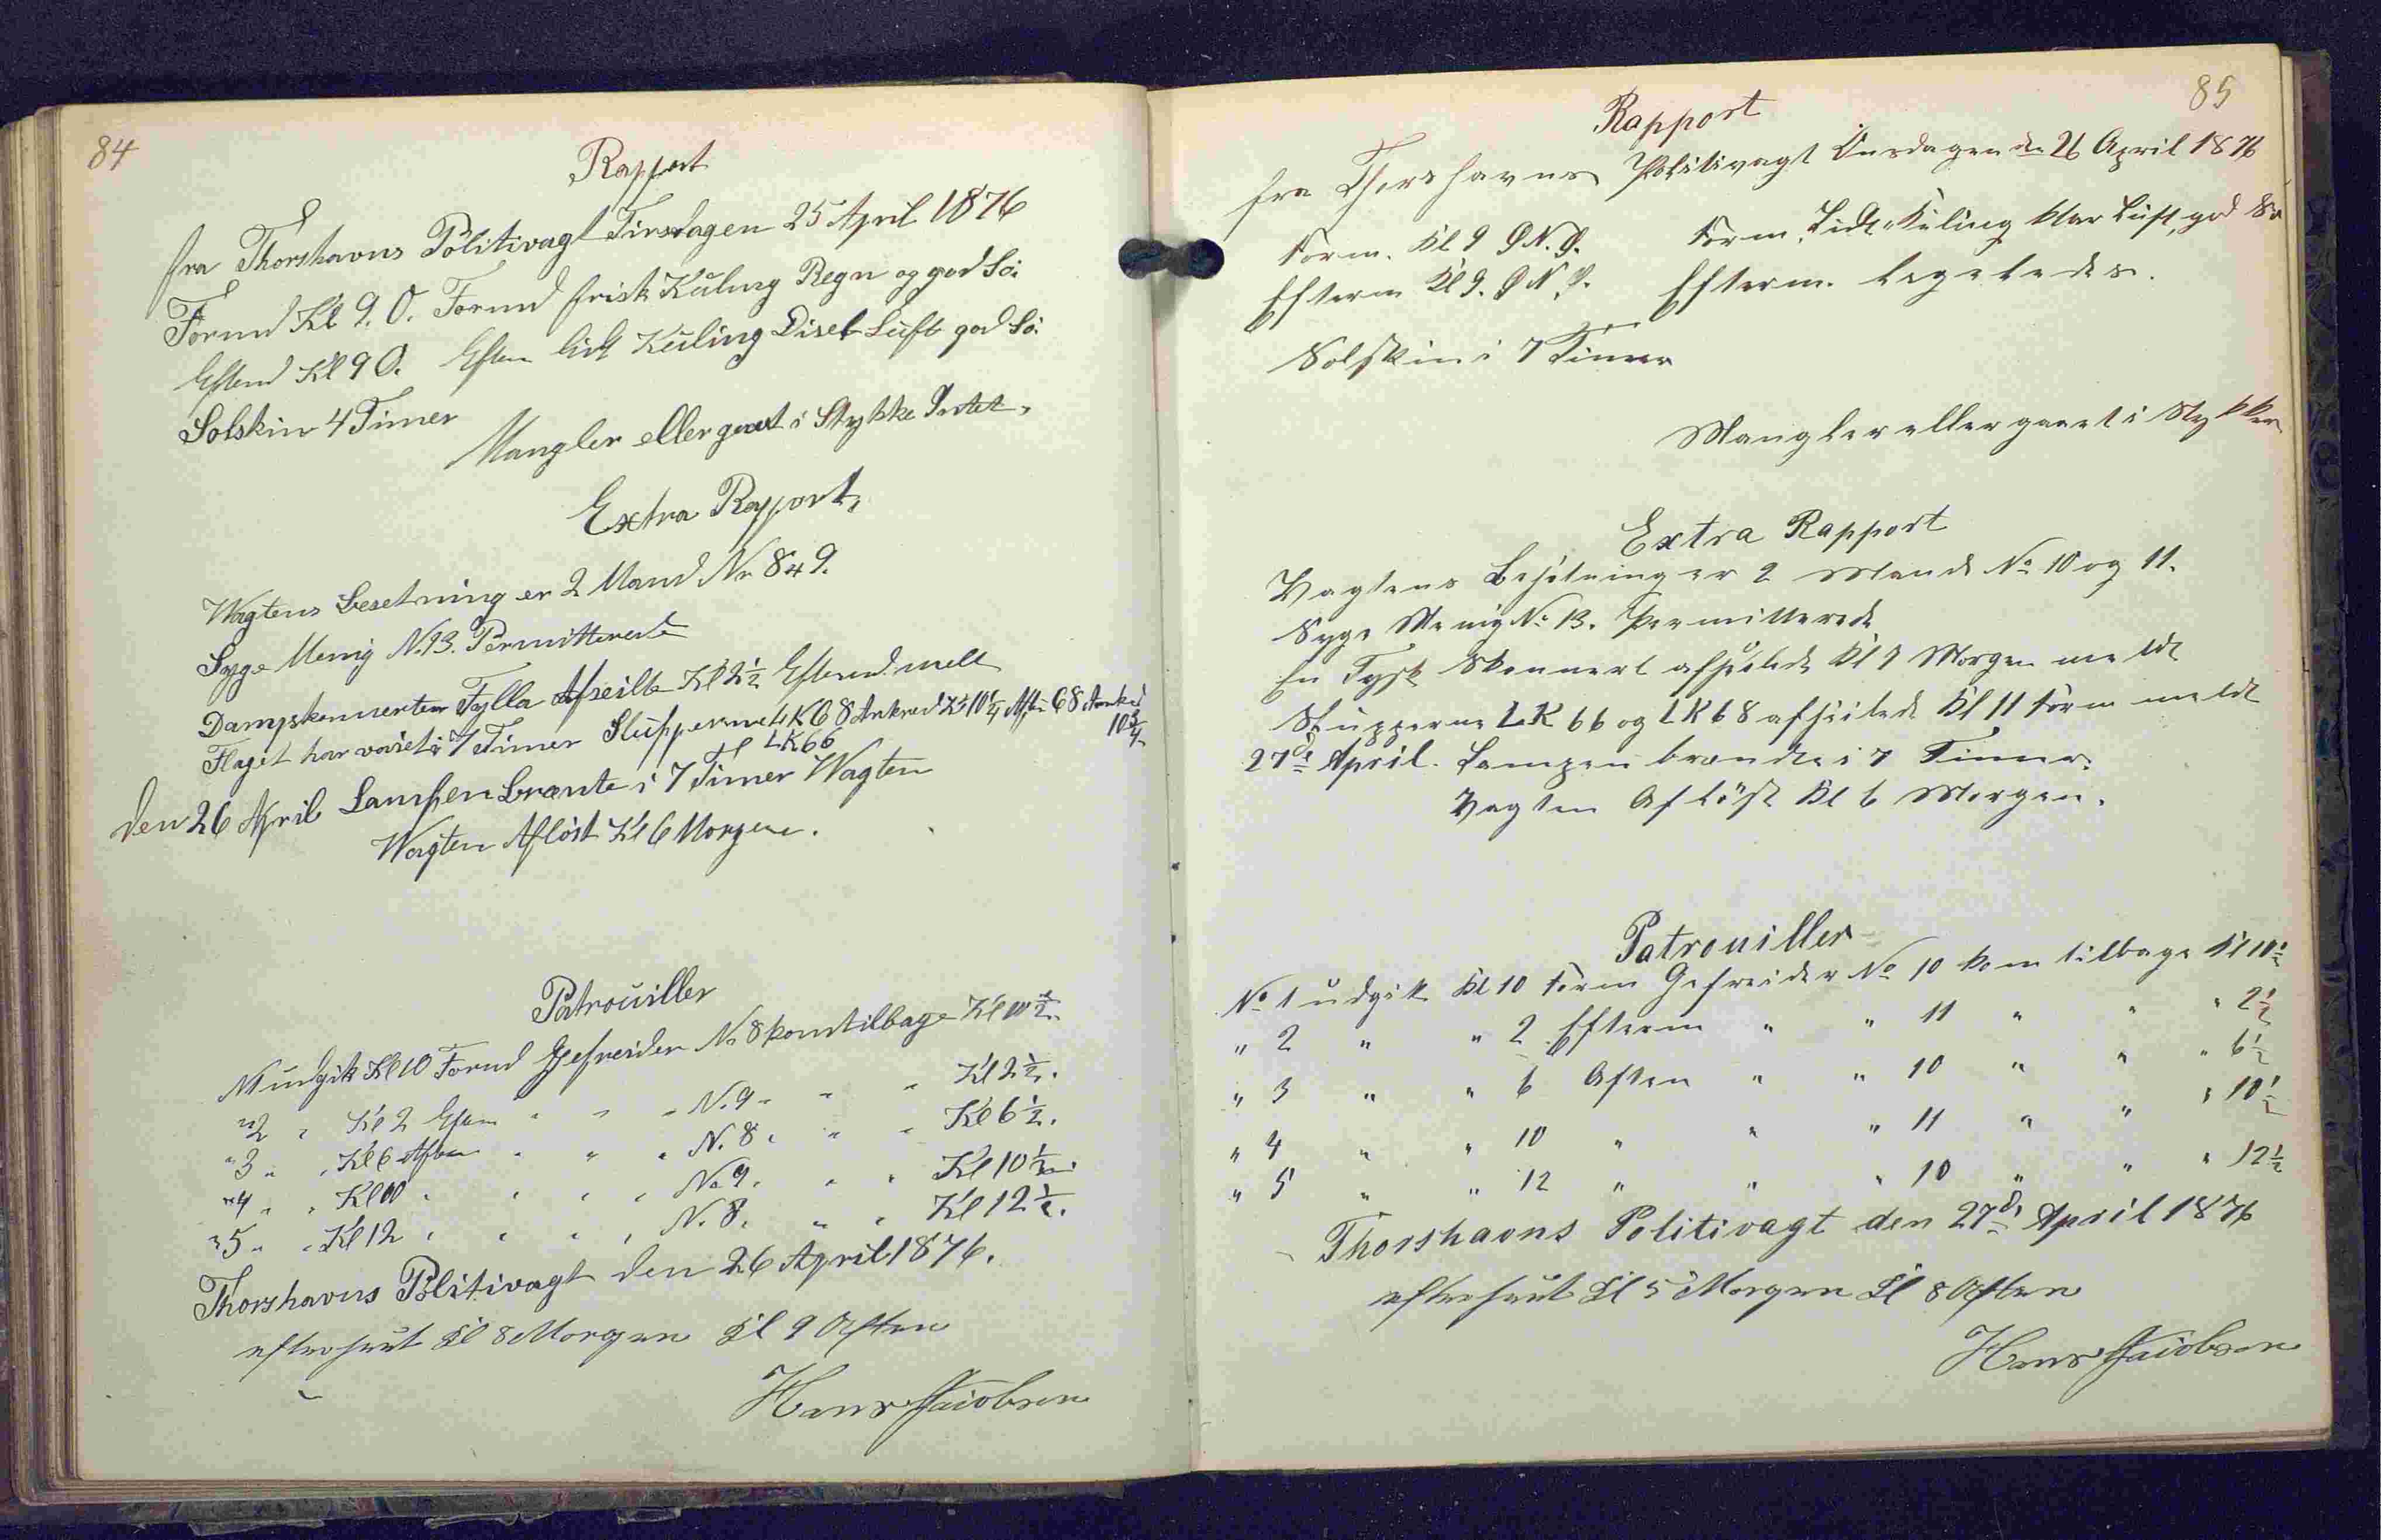 84
Rapport
fra Thorshavns Politivagt Tirsdagen 25 April 1876
Formd Kl 9. O. Formd frisk Kuling Regn og god Sö.
Eftmd Kl 9 O. Eftm lidt Kuling Diset Luft god Sö.
Solskin 4 Timer
Mangler eller gaaet i Stykke Intet.
Extra Rapport,
Wagtens Besetning er 2 Mand Nr 8 & 9.
Syge Menig N. 13. Permitterede
Dampskonnerten Fylla Afseilte Kl 2½ Eftermd. meldt
Flaget har vaiet i 7 Timer Slupperne LK 68 Ankred Kl 10¼ Aft. 68 Anked
LK 66 10¾
den 26 April Lampen brænte i 7 Timer Wagten
Wagten Aflöst Kl 6 Morgen.
Patrouiller
N 1 udgik Kl 10 Formd Gefreider No 8 kom tilbage Kl 10½.
" 2 " Kl 2 Eftm " " " N. 9 " " " Kl 2½.
" 3 " " Kl 6 Aften " " " N. 8 " " " Kl 6½.
" 4 " " Kl 10 " " " " No 9. " " Kl 10½.
" 5 " " Kl 12 " " " " N. 8. " " Kl 12½.
Thorshavns Politivagt den 26 April 1876.
efterseet Kl 8 Morgen Kl 9 Aften
Hans Jacobsen
85
Rapport
fra Thorshavns Politivagt Onsdagen dn 26 April 1876
Form. Kl 9 O.N.O. Form. Lidt Kuling klar Luft, god Sö
Efterm Kl 9. O.N.O. Efterm. ligeledes.
Solskin i 7 Timer
Mangler eller gaaet i Stykker
Extra Rapport
Vagtens Besetning er 2 Mand No 10 og 11.
Syge Menig No 13. Permitterede
En Tysk Skonnert afseilede Kl 7 Morgen meldt
Slupperne LK 66 og LK 68 afseilede Kl 11 Form meldt
27de April. Lampen brændte i 7 Timer.
Vagten Aflöst Kl 6 Morgen.
Patrouiller
No 1 udgik Kl 10 Form Gefreider No 10 kom tilbage Kl 10½
" 2 " " 2 Efterm " " 11 " " " 2½
" 3 " " 6 Aften " " 10 " " " 6½
" 4 " " 10 " " " 11 " " " 10½
" 5 " " 12 " " " 10 " " " 12½
Thorshavns Politivagt den 27de April 1876
efterseet Kl 5 Morgen Kl 8 Aften
Hans Jacobsen